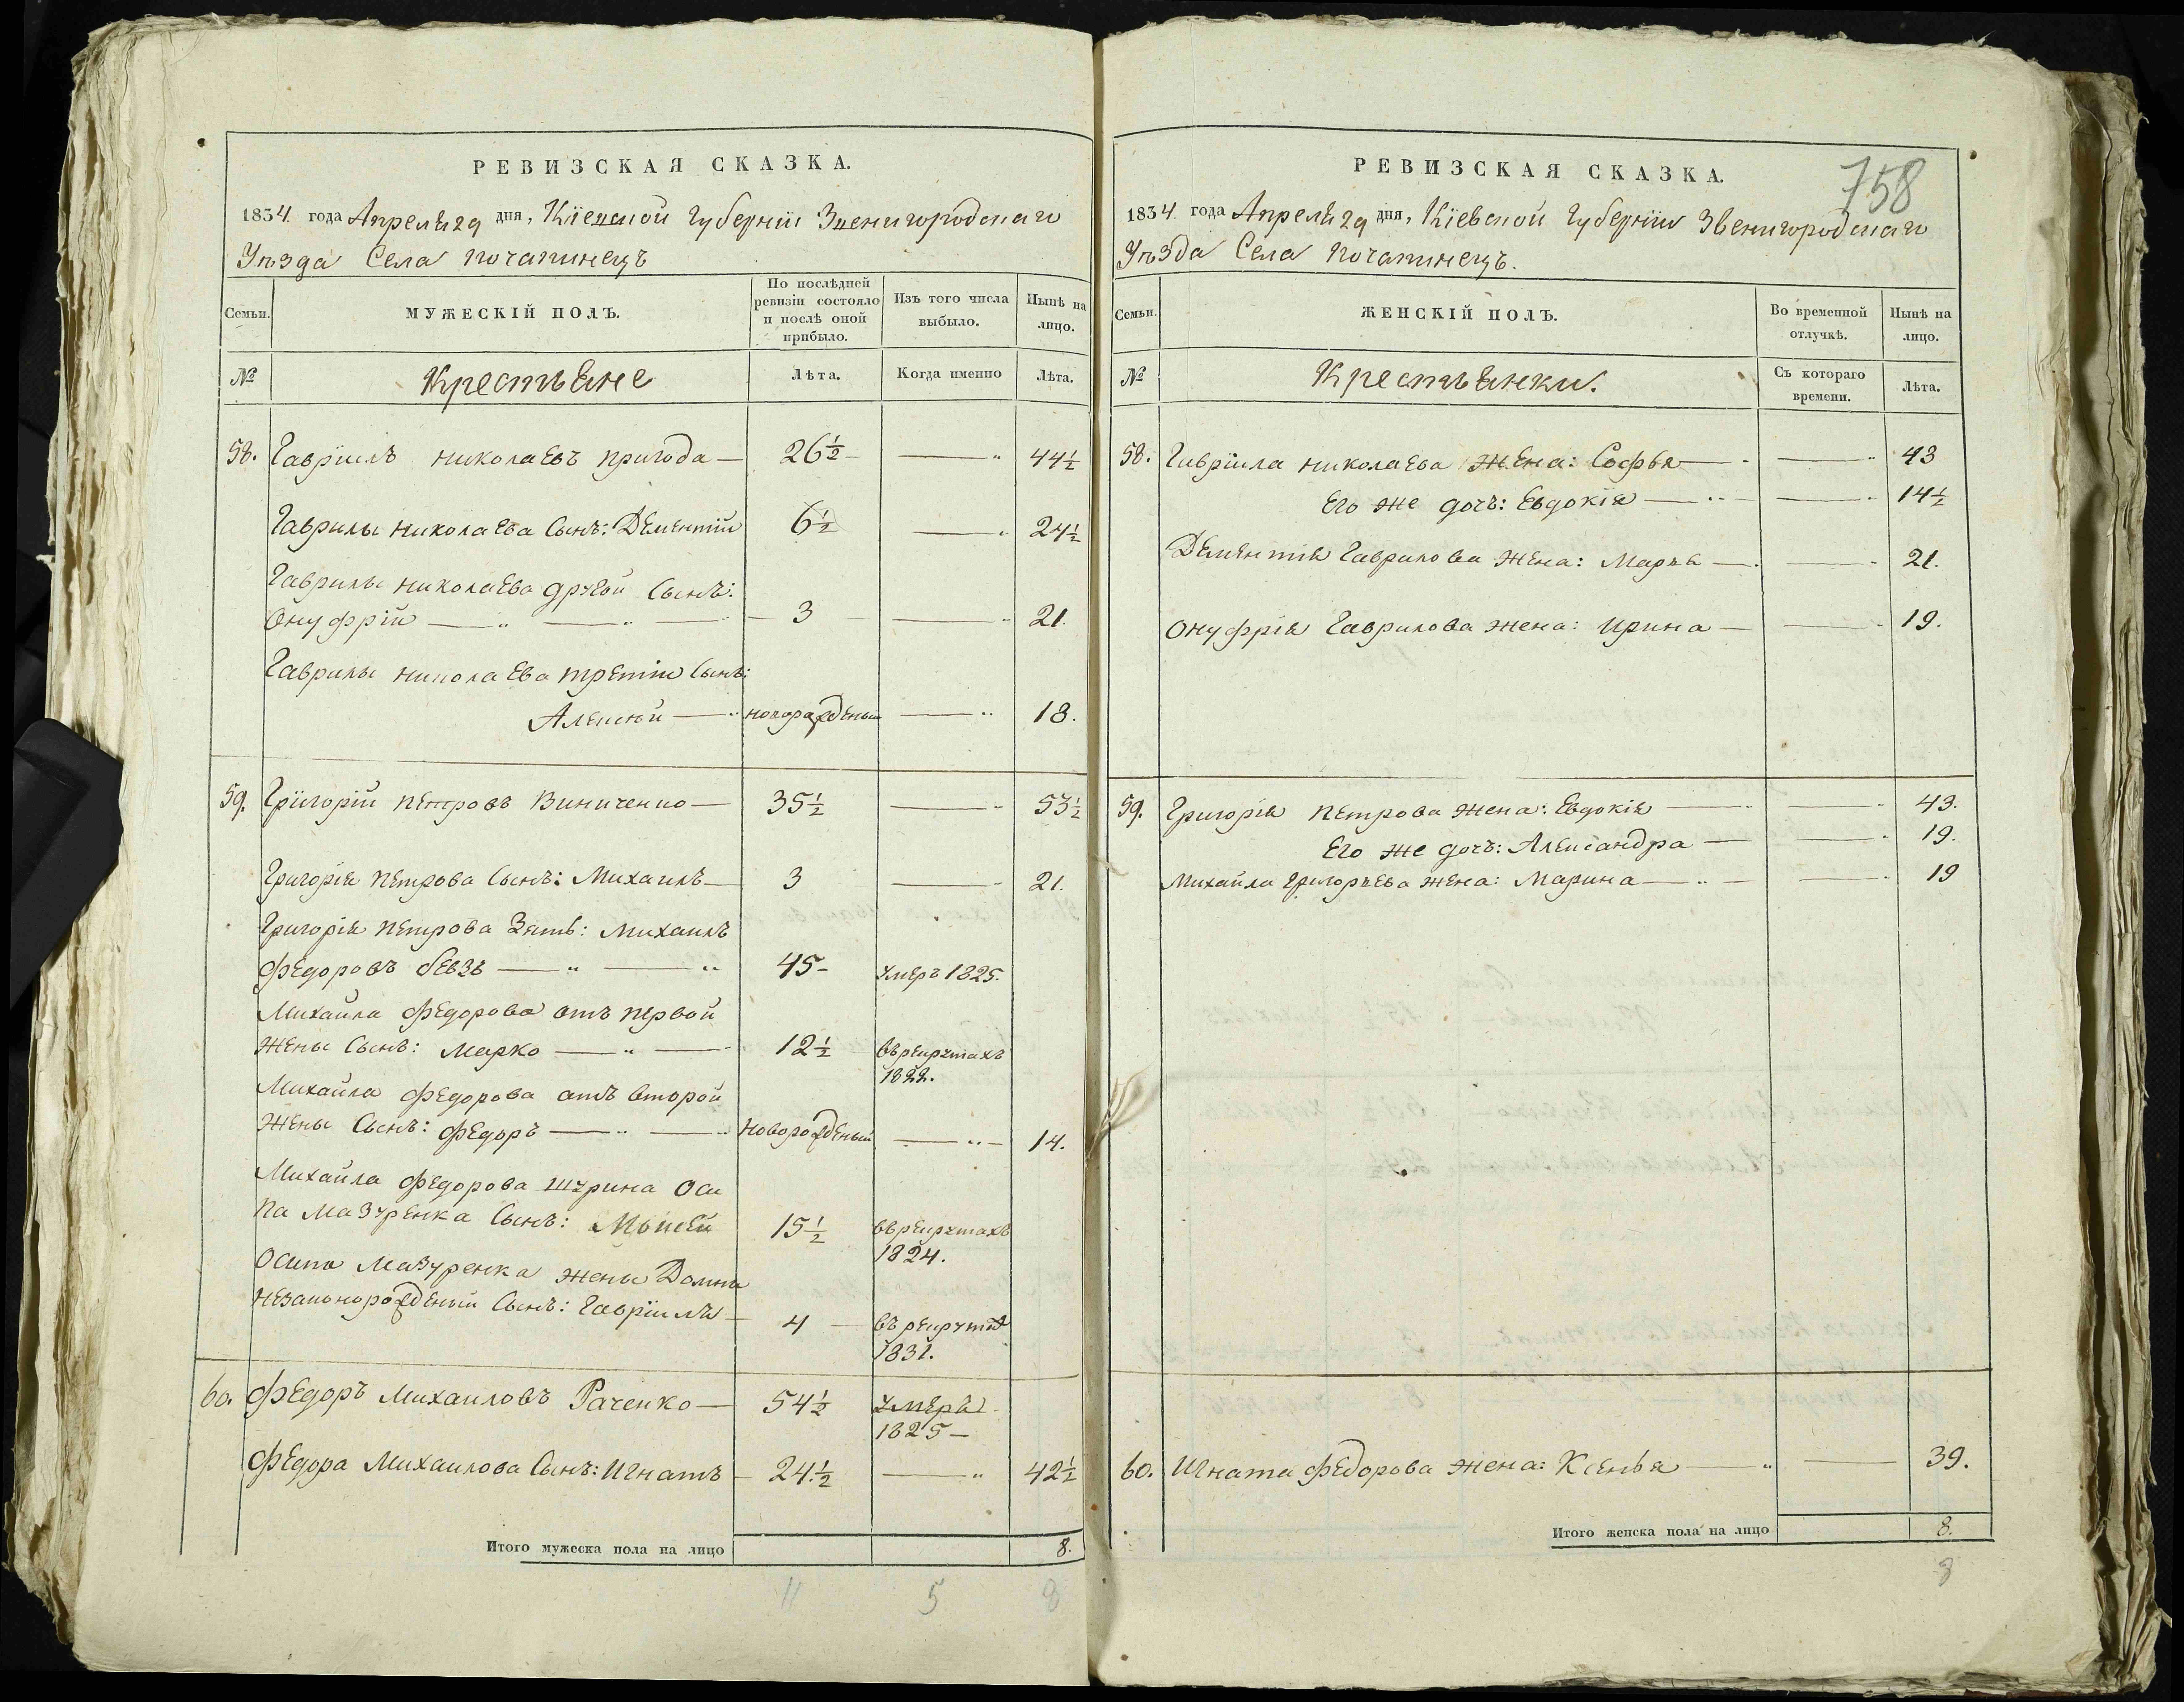 РЕВИЗСКАЯ СКАЗКА.
1834 года Апреля 29 дня, Кіевской Губерніи Звенигородскаго
Уѣзда Села Почапинецъ
Семьи.
МУЖЕСКІЙ ПОЛЪ.
По послѣдней ревизіи состояло и послѣ оной прибыло.
Изъ того числа выбыло.
Нынѣ на лицо.
№
Крестьяне
Лѣта.
Когда именно
Лѣта.
58. Гавріилъ Николаевъ Пригода — 26½ — 44½
Гаврилы Николаева Сынъ: Дементій 6½ — 24½
Гаврилы Николаева другой Сынъ:
Онуфрій — 3 — 21.
Гаврилы Николаева третій Сынъ:
Алексѣй — новорожденый — 18.
59. Григорій Петровъ Виниченко — 35½ — 53½
Григорія Петрова Сынъ: Михаилъ — 3 — 21.
Григорія Петрова Зять: Михаилъ
Федоровъ Бевзъ — 45 - умеръ 1825.
Михаила Федорова отъ первой
жены Сынъ: Марко — 12½ въ рекрутахъ
1822.
Михайла Федорова отъ второй
жены Сынъ: Федоръ — новорожденый — 14.
Михайла Федорова шурина Оси
па Мазуренка Сынъ: Моисей 15½ въ рекрутахъ
1824.
Осипа Мазуренка жены Домны
незаконорожденый Сынъ: Гавріилъ — 4 — въ рекрутах
1831.
60. Федоръ Михаиловъ Раченко — 54½ умеръ
1825 —
Федора Михаилова Сынъ: Игнатъ — 24½ — 42½
Итого мужеска пола на лицо 8.
11 5 8
РЕВИЗСКАЯ СКАЗКА.
758
1834 года Апреля 29 дня, Кіевской Губерніи Звенигородскаго
Уѣзда Села Почапинецъ.
Семьи.
ЖЕНСКІЙ ПОЛЪ.
Во временной отлучкѣ.
Нынѣ на лицо.
№
Крестьянки.
Съ котораго времени.
Лѣта.
58. Гавріила Николаева жена: Софья — 43
Его же дочь: Евдокія — 14½
Дементія Гаврилова жена: Марья — 21.
Онуфрія Гаврилова жена: Ирина — 19.
59. Григорія Петрова жена: Евдокія — 43.
Его же дочь: Александра — 19.
Михайла Григорьева жена: Марина — 19
60. Игната Федорова жена: Ксенья — 39.
Итого женска пола на лицо 8.
8